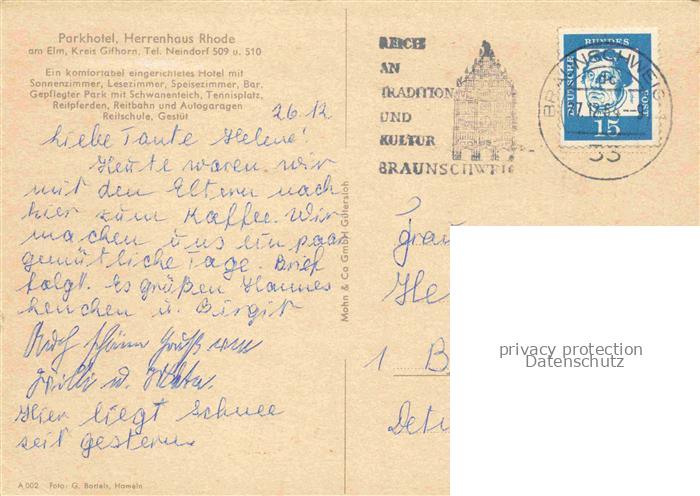 Parkhotel, Herrenhaus Rhode
am Elm, Kreis Gifhorn, Tel. Neindorf 509 u. 510
Ein komfortabel eingerichtetes Hotel mit
Sonnenzimmer, Lesezimmer, Speisezimmer, Bar.
Gepflegter Park mit Schwanenteich, Tennisplatz,
Reitpferden, Reitbahn und Autogaragen
Reitschule, Gestüt
26.12
Liebe Tante Helene!
Heute waren wir
mit den Eltern nach
hier zum Kaffee. Wir
machen uns ein paar
gemütliche Tage. Brief
folgt. Es grüßen Hannes
henchen u. Birgit
Auch schöne Grüße von
Hier liegt Schnee
seit gestern.
A 002 Foto: G. Bartels, Hameln
Mohn & Co GmbH Gütersloh
REICH
AN
TRADITION
UND
KULTUR
BRAUNSCHWEIG
BRAUNSCHWEIG
33
DEUTSCHE BUNDESPOST
15
1 B
Det
privacy protection
Datenschutz